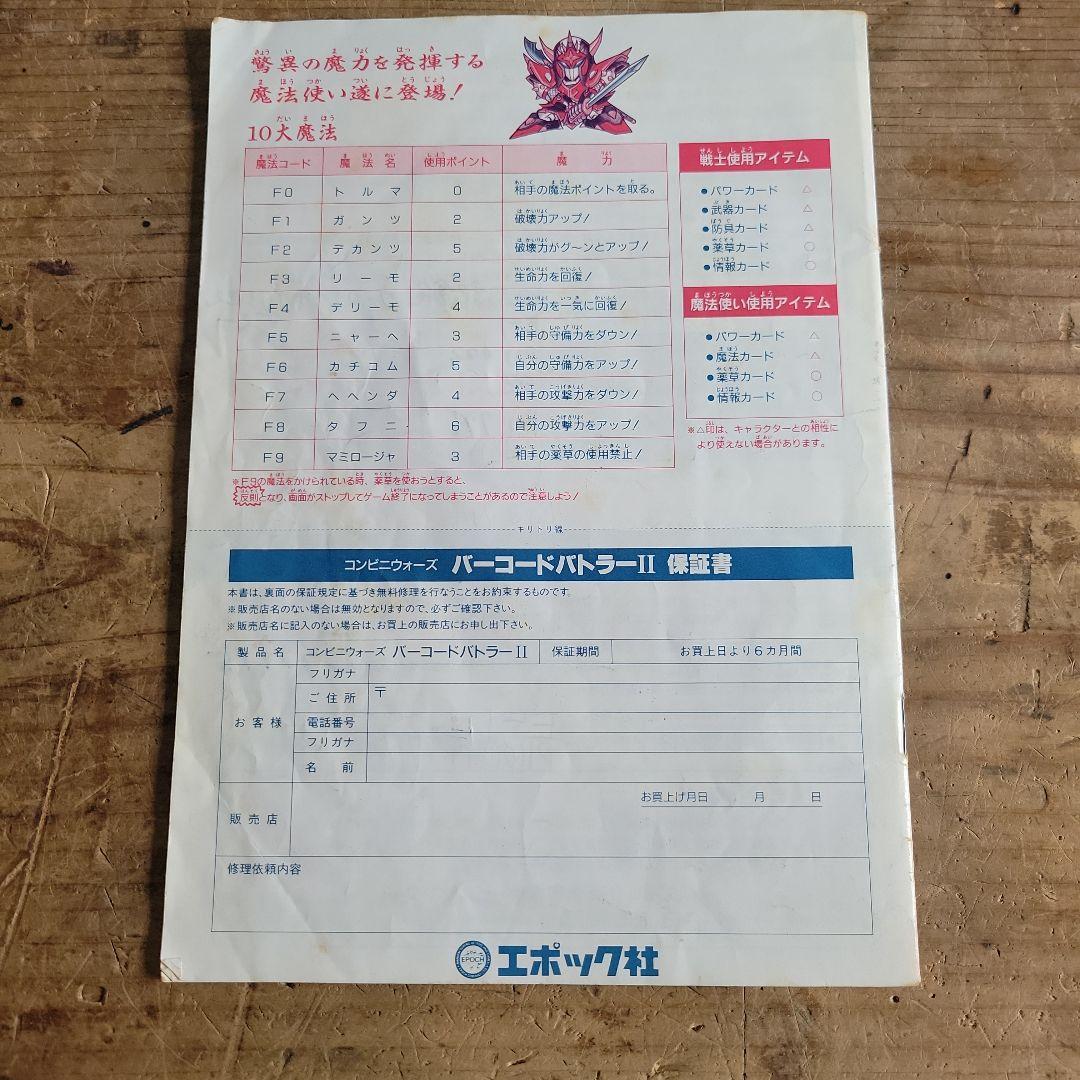 驚異の魔力を発揮する
魔法使い遂に登場!
10大魔法
魔法コード 魔法名 使用ポイント 魔力
F0 トルマ 0 相手の魔法ポイントを取る。
F1 ガンツ 2 破壊力アップ!
F2 デカンツ 5 破壊力がグ〜ンとアップ!
F3 リーモ 2 生命力を回復!
F4 デリーモ 4 生命力を一気に回復!
F5 ニャーヘ 3 相手の守備力をダウン!
F6 カチコム 5 自分の守備力をアップ!
F7 ヘヘンダ 4 相手の攻撃力をダウン!
F8 タフニ 6 自分の攻撃力をアップ!
F9 マミロージャ 3 相手の薬草の使用禁止!
※F9の魔法をかけられている時、薬草を使おうとすると、
反則となり、画面がストップしてゲーム終了になってしまうことがあるので注意しよう!
戦士使用アイテム
●パワーカード △
●武器カード △
●防具カード △
●薬草カード ○
●情報カード ○
魔法使い使用アイテム
●パワーカード △
●魔法カード △
●薬草カード ○
●情報カード ○
※△印は、キャラクターとの相性に
より使えない場合があります。
キリトリ線
コンビニウォーズ バーコードバトラーII 保証書
本書は、裏面の保証規定に基づき無料修理を行なうことをお約束するものです。
※販売店名のない場合は無効となりますので、必ずご確認下さい。
※販売店名に記入のない場合は、お買上の販売店にお申し出下さい。
製品名 コンビニウォーズ バーコードバトラーII 保証期間 お買上日より6カ月間
お客様
フリガナ
ご住所 〒
電話番号
フリガナ
名前
販売店
お買上げ月日 月 日
修理依頼内容
EPOCH エポック社